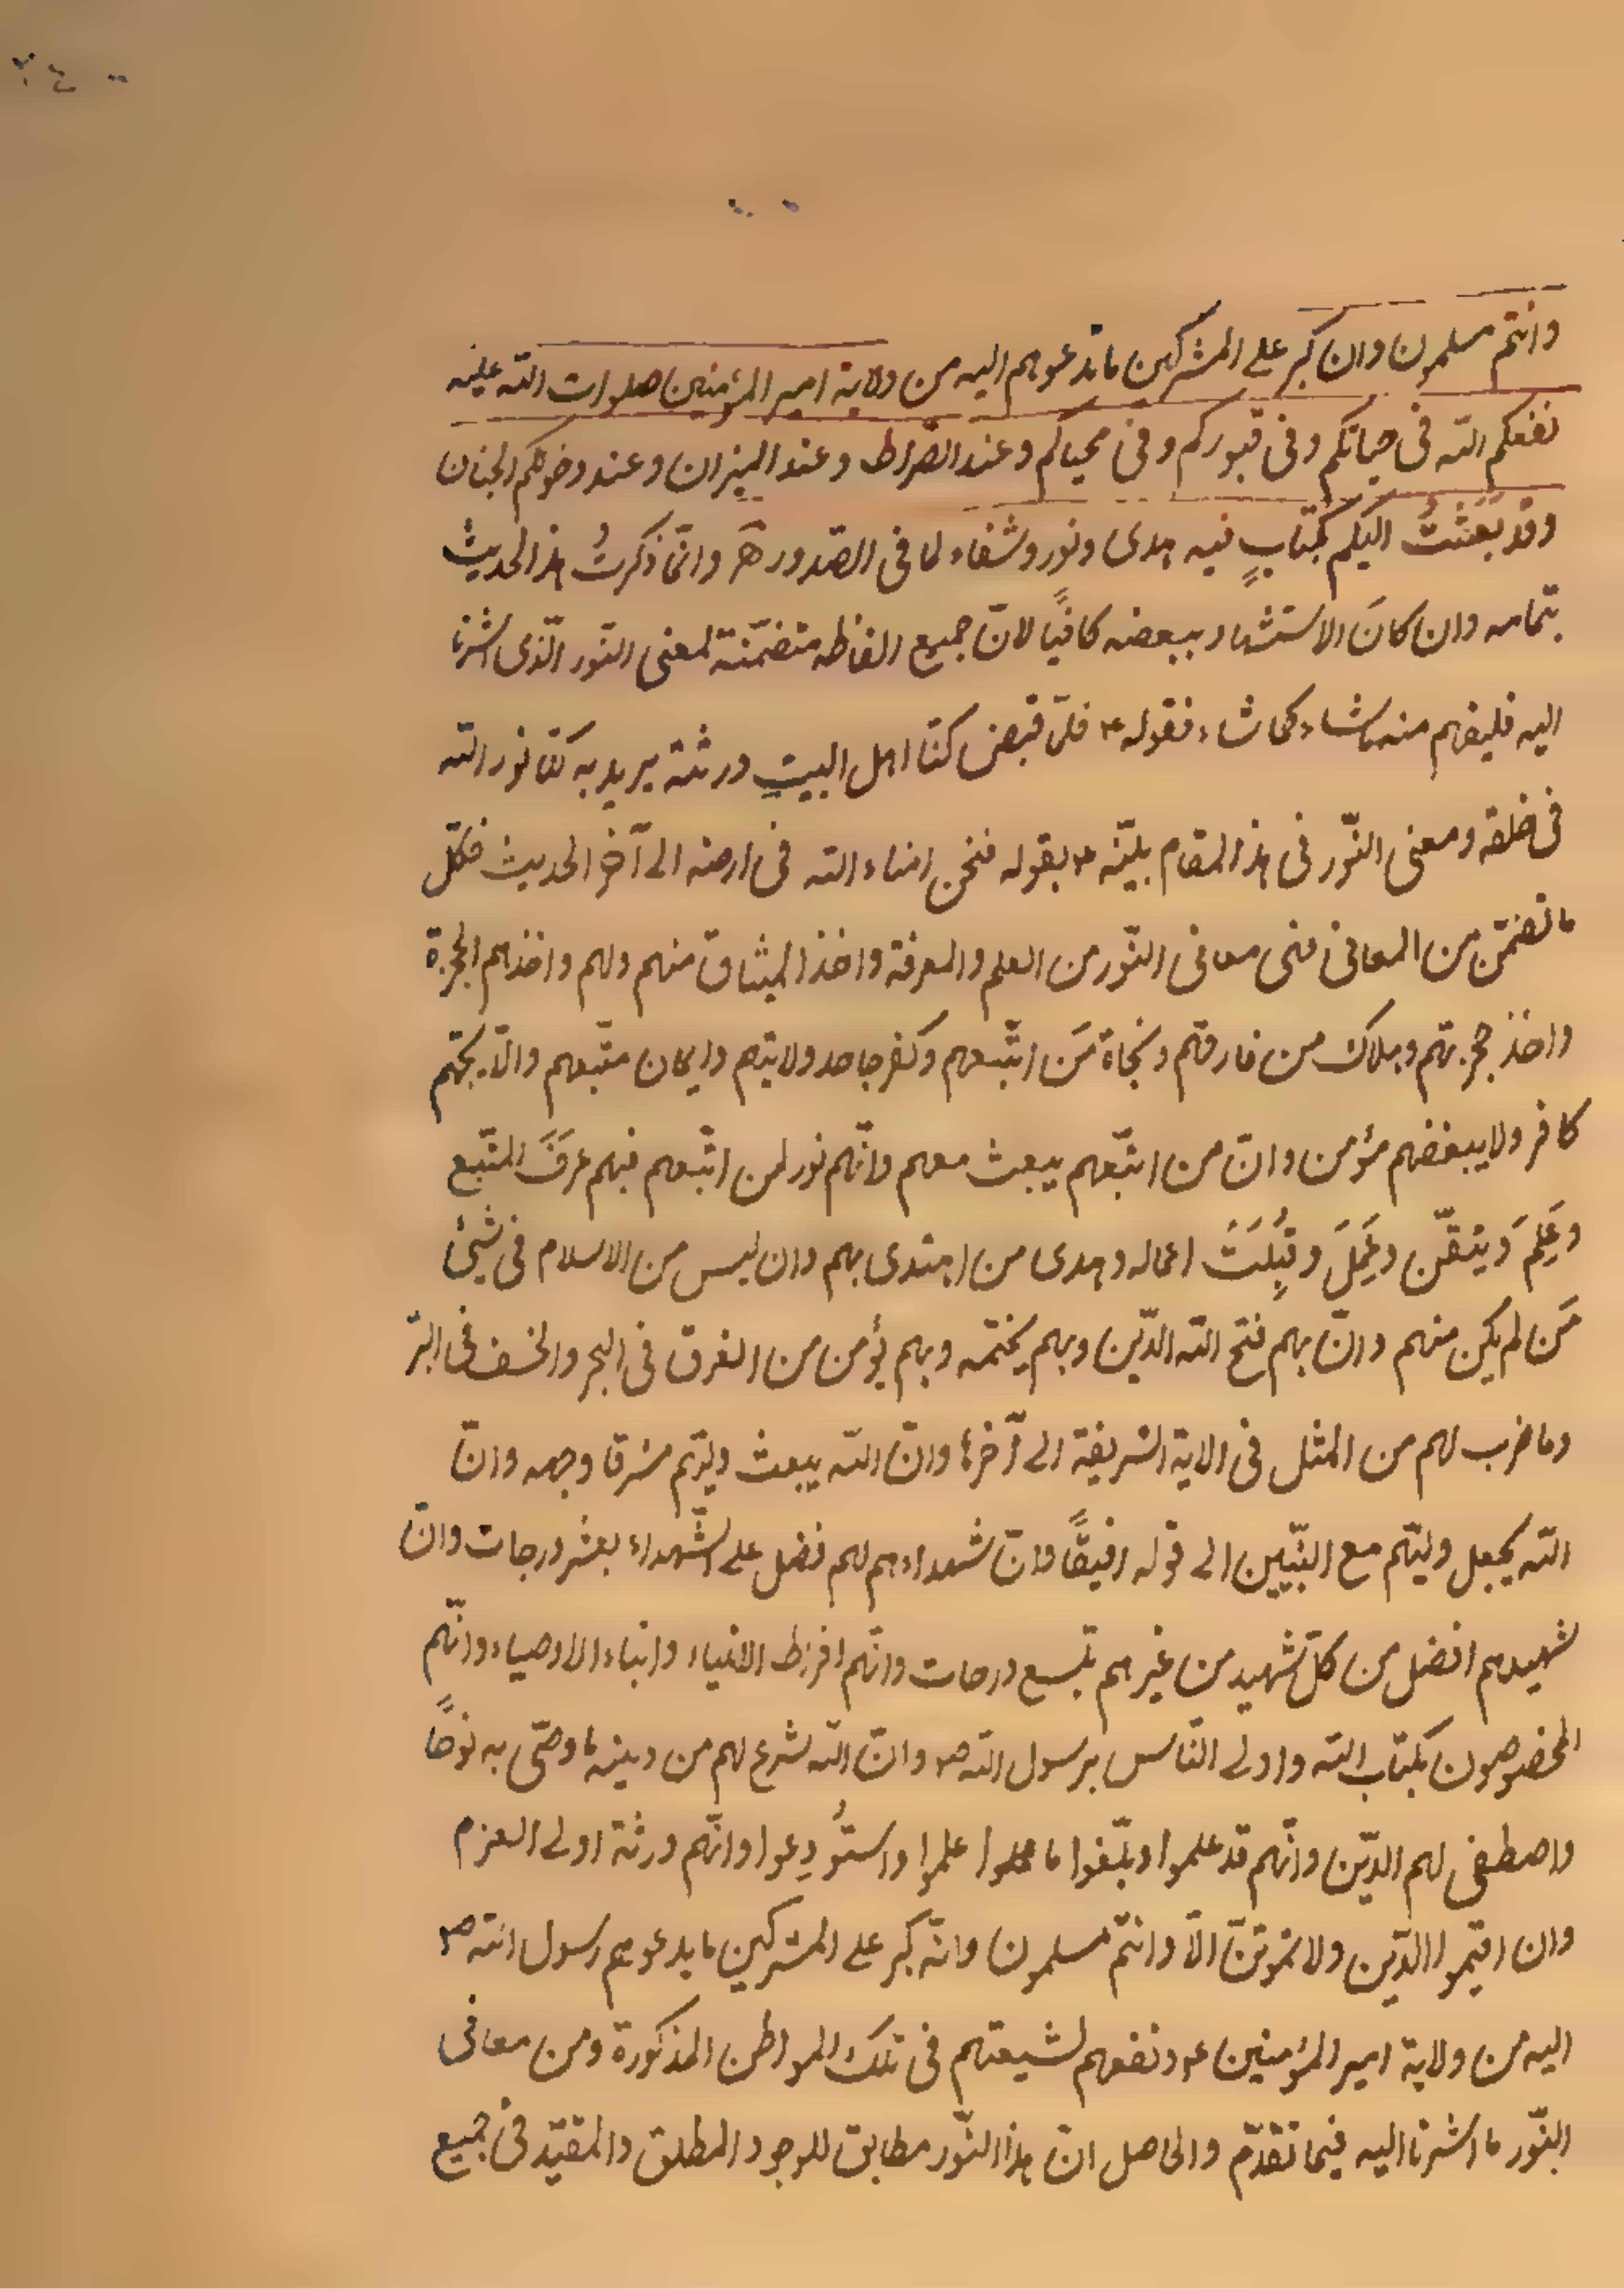 وانتم مسلمون وان كبر على المشركين ما تدعوهم اليه من ولاية امير المؤمنين صلوات الله عليه
نفعكم الله فى حياتكم وفى قبوركم وفى محياكم وعند الصّراط وعند الميزان وعند دخولكم الجنان
وقد بَعَثتُ اليكم بكتابٍ فيه هدى ونور وشفاء لما فى الصّدور وانّما ذكرتُ هذا الحديث
بتمامه وان كانَ الاستشهاد ببعضه كافيًا لانّ جميع الفاظه متضمّنة لمعنى النّور الّذى اشرنا
اليه فليفهم منه ماشاء كما شاء فقوله ع فلمّا قبض كنّا اهل البيت ورثته يريد به كنّا نور الله
فى خلقه ومعنى النّور فى هذا المقام بيّنه ع بقوله فنحن امناء الله فى ارضه الى آخر الحديث فكلّ
ما تضمّن من المعانى فمن معانى النّور من العلم والمعرفة واخذ الميثاق منهم ولهم واخذهم الحجزة
واخذ حجزتهم وهلاك من فارقهم ونجاة مَن اتّبعهم وكفر جاحد ولايتهم وايمان متّبعهم والّا يحبّهم
كافر ولا يبغضهم مؤمن وانّ من اتّبعهم يبعث معهم وانّهم نور لمن اتّبعهم فبهم عرَفَ المتّبع
وعَلِمَ ويتيقّن وعَمِلَ وقُبِلَتْ اعماله وهدى من اهتدى بهم وان ليس من الاسلام فى شيئ
مَن لم يكن منهم وانّ بهم فتح الله الدّين وبهم يختمه وبهم يؤمن من الغرق فى البحر والخسف فى البرّ
وما ضرب لهم من المثل فى الاية الشريفة الى آخرها وانّ الله يبعث وليّهم مشرقا وجهه وانّ
الله يجعل وليّهم مع النبيّين الى قوله رفيقًا وانّ شهداءهم لهم فضل على الشّهداء بعشر درجات وانّ
شهيدهم افضل من كلّ شهيد من غيرهم بتسع درجات وانّهم افراط الانبياء وابناء الاوصياء وانّهم
المخصوصون بكتاب الله واولى النّاس برسول الله ص وانّ الله شرع لهم من دينه ما وصّى به نوحًا
واصطفى لهم الدّين وانّهم قد علموا وبلّغوا ما علموا واستُودِعوا وانّهم ورثة اولى العزم
وان اقيموا الدّين ولا تموتنّ الّا وانتم مسلمون وانّه كبر على المشركين ما يدعوهم رسول الله ص
اليه من ولاية امير المؤمنين ع ونفعهم لشيعتهم فى تلك المواطن المذكورة ومن معانى
النّور ما اشرنا اليه فيما تقدّم والحاصل انّ هذا النّور مطابق للوجود المطلق والمقيّد فى جميع